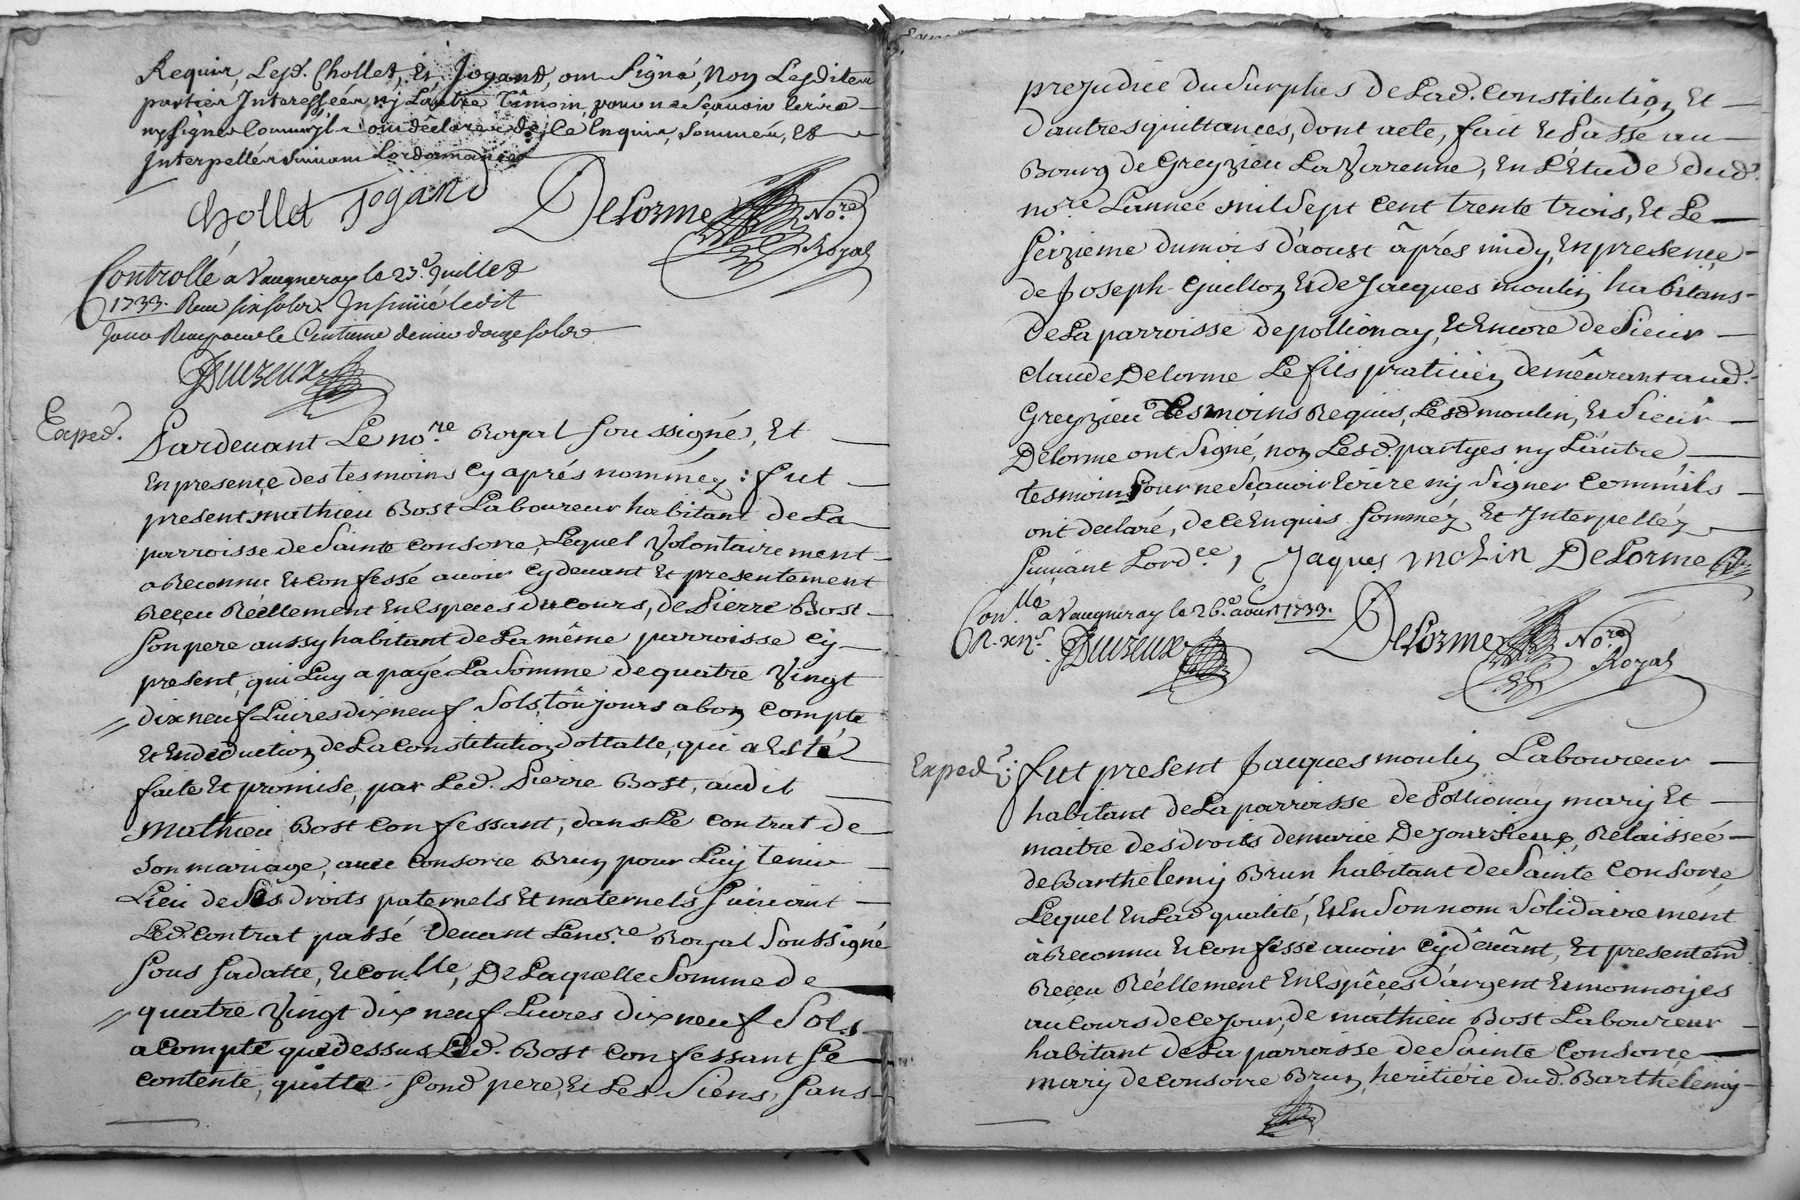 Requis, Lesd. Chollet, Et Jogand, ont Signé, Non Lesdites
parties Interessées, nj Lautre Témoin, pour ne Sçavoir écrire
nj Signer Comm'jls ont déclaré de, ce Enquis, Sommés, Et
Interpellés Suivant Lordonnance
Chollet Jogand Delorme No.re
Royal
Controllé a Vaugneray le 23.e Juillet
1733. Recu six sols. Insinué ledit
Jour Recu pour le Centieme denier douze sols
Duizeux
Exped.
Pardevant Le no.re Royal Soussigné, Et
En presençe des tesmoins Cy aprés nommez : fut
present Mathieu Bost Laboureur habitant de La
parroisse de Sainte Consorce, Lequel Volontairement
a Reconnu Et confessé avoir Cy devant Et presentement
Reçeu Réellement En Especes du cours, de Pierre Bost
Son pere aussy habitant de La même parroisse Cy
present, qui Luy a payé La Somme de quatre Vingt
dix neuf Livres dix neuf Sols, toûjours a bon Compte
Et En déduction de La Constitution dottalle, qui a Esté
faite Et promise, par Led. Pierre Bost, audit
Mathieu Bost Confessant, dans Le Contrat de
Son mariage, avec Consorce Brun pour Luy tenir
Lieu de Ses droits paternels Et maternels Suivant
Led. Contrat passé Devant Le no.re Royal Soussigné
Sous Sa datte, Et Conllé, De Laquelle Somme de
quatre Vingt dix neuf Livres dix neuf Sols
a Compte que dessus Led. Bost Confessant Se
Contente, quitte Sond pere, Et Les Siens, Sans
prejudice du Surplus de Lad. Constitution Et
d'autres quittances, dont acte, fait Et Passé au
Bourg de Greyzieu La Varenne, En L'Etude dud.
no.re L'année mil Sept Cent trente trois, Et Le
Seizieme du mois d'aoust âprés midy, En presençe
de Joseph Guillon Et de Jacques moulin habitans
de La parroisse de pollionay, Et Encore de Sieur
claude Delorme Le fils praticien demeurant aud.
Greyzieu tesmoins Requis, Lesd moulin, Et Sieur
Delorme ont Signé, non Lesd. partyes ny L'autre
tesmoins Pour ne Sçavoir Ecrire ny Signer Comm'ils
ont declaré, de ce Enquis Sommez Et Interpellez
Suivant Lord.ce, Jaques molin Delorme
Con.llé a Vaugneray le 26.e aoust 1733.
R. xii s. Duizeux Delorme No.re
Royal
Exped.:
fut present Jacques moulin Laboureur
habitant de La parroisse de Pollionay mary Et
maitre des droits de marie De jour Relaissée
de Barthelemy Brun habitant de Sainte Consorce
Lequel En Lad qualité, Et En Son nom Solidairement
à Reconnu Et Confessé avoir Cy devant, Et presentem.t
Reçeu Réellement En Espêçes d'argent Et monnoyes
au Cours de Ce Jour, de mathieu Bost Laboureur
habitant de La parroisse de Sainte Consorce
mary de Consorce Brun heritiére dud. Barthelemy